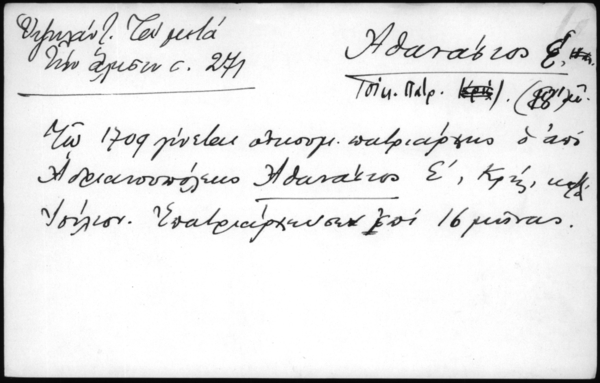 Ὑψηλάντ. Τὰ μετὰ
τὴν ἅλωσιν σ. 271
Ἀθανάσιος Ε΄,
Οἰκ. Πατρ. (18 μῆν.)
Τῷ 1709 γίνεται οἰκουμ. πατριάρχης ὁ ἀπὸ
Ἀδριανουπόλεως Ἀθανάσιος Ε΄, Κρής, κατὰ
Ὑψηλ. Ἐπατριάρχευσεν ἐπὶ 16 μῆνας.